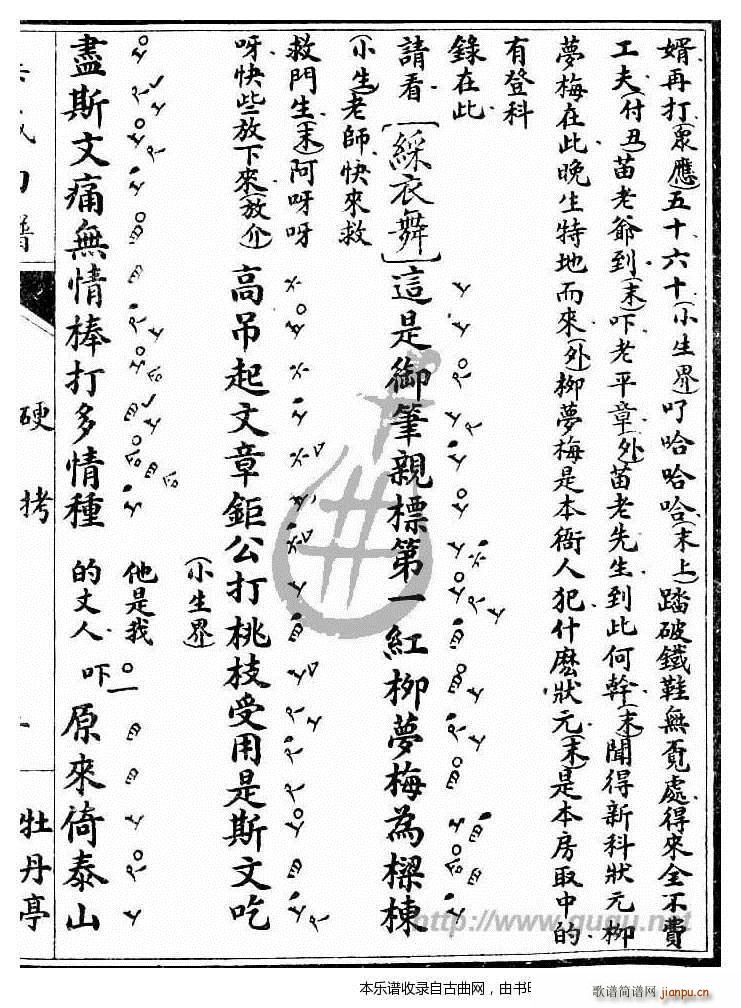 婿再打(衆應)五十六十(小生界)叮哈哈哈(末上)踏破鐵鞋無覔處得來全不費
工夫(付丑)苗老爺到(末)吓老平章(外)苗老先生到此何幹(末)聞得新科狀元柳
夢梅在此晚生特地而來(外)柳夢梅是本衙人犯什麽狀元(末)是本房取中的
有登科
錄在此
請看[綵衣舞]這是御筆親標第一紅柳夢梅為樑棟
(小生)老師快來救
救門生(末)阿呀呀
呀快些放下來(放介)高吊起文章鉅公打桃枝受用是斯文吃
(小生界)
盡斯文痛無情棒打多情種
他是我
的丈人吓原來倚泰山
硬拷
牡丹亭
http://www.guqu.net
本乐谱收录自古曲网，由书
歌谱简谱网
jianpu.cn